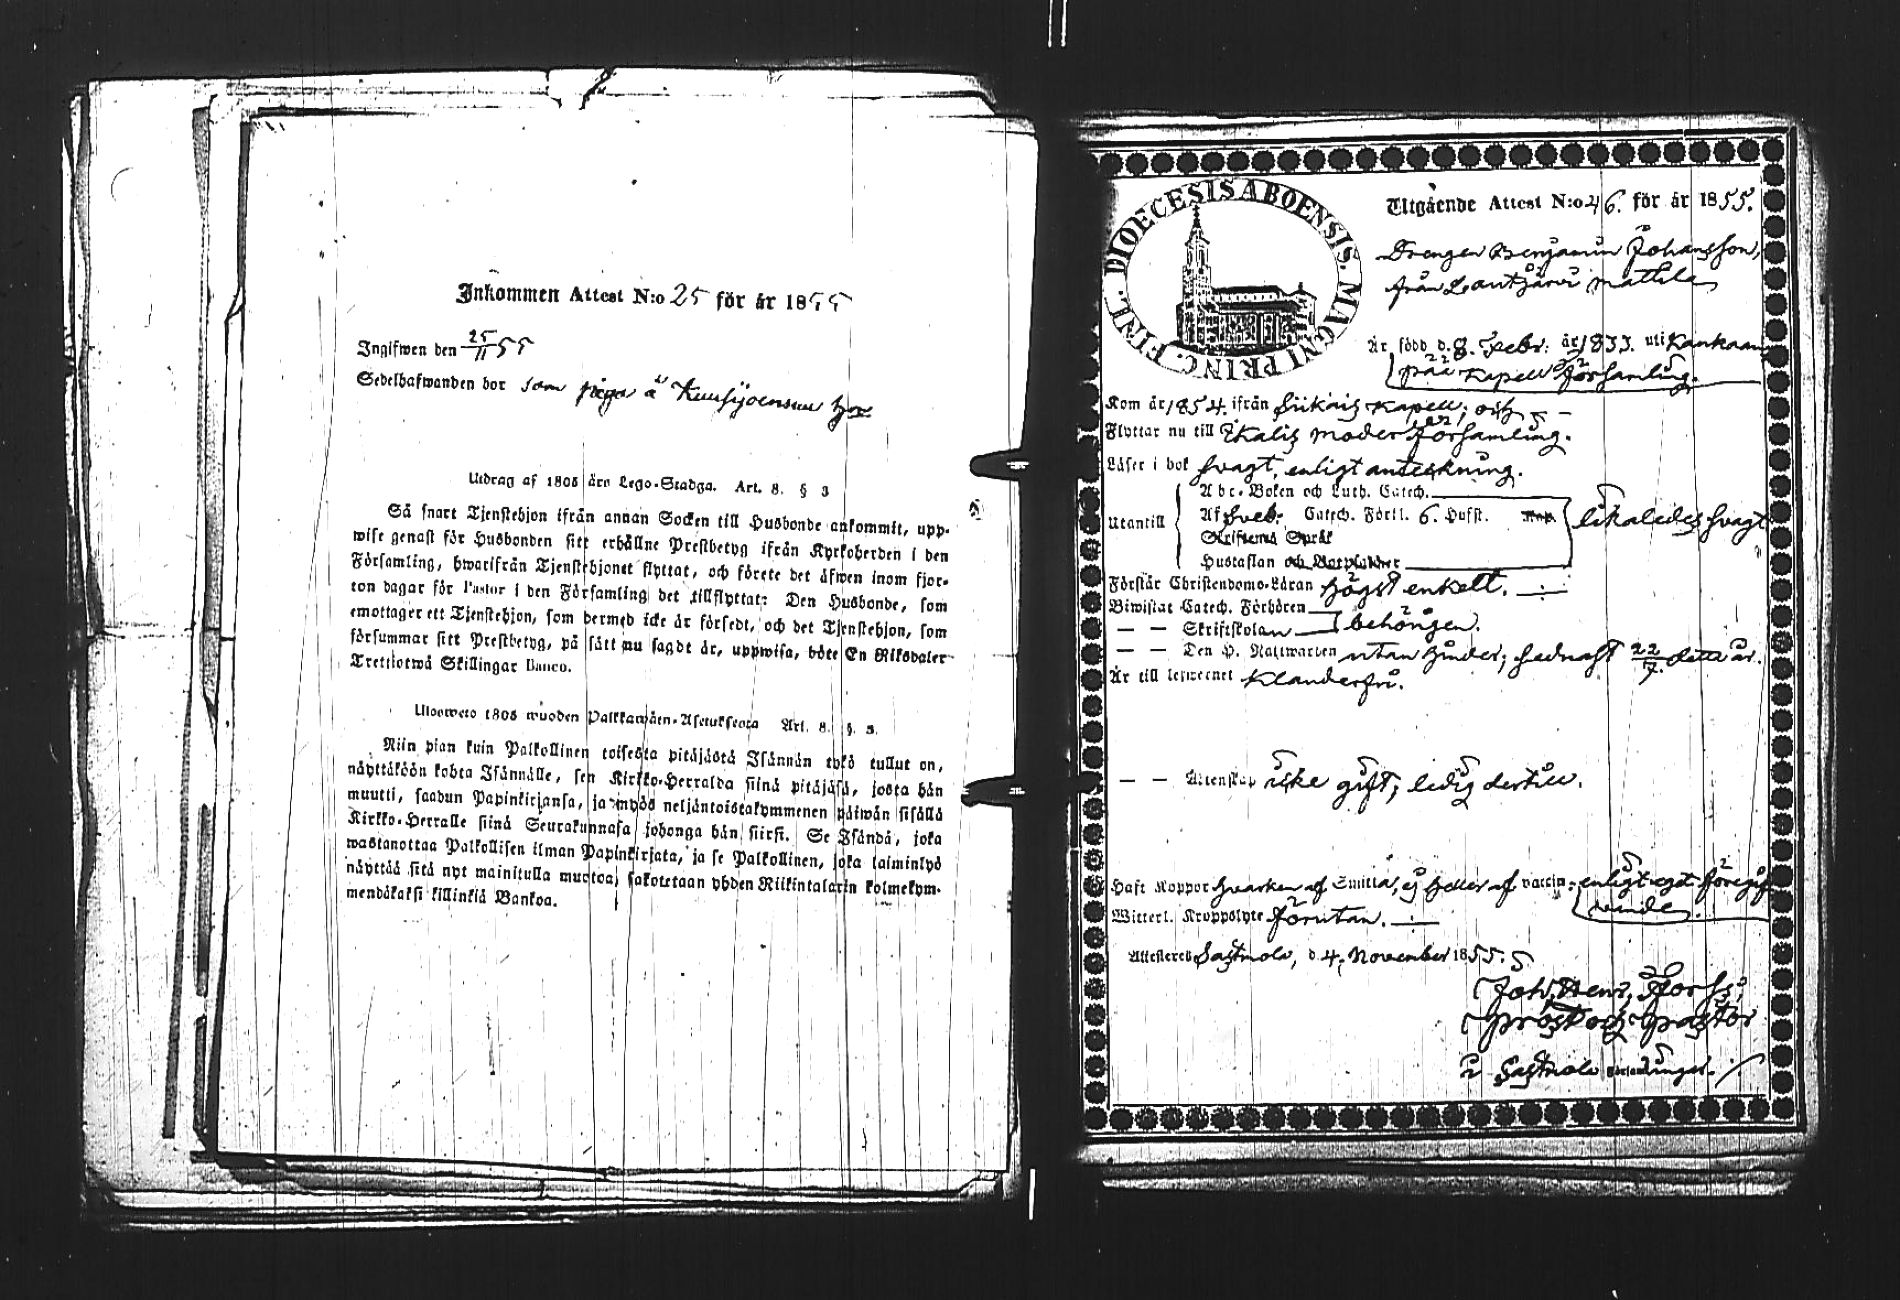 Inkommen Attest N:o 25 för år 1855
Ingifwen den 25/11 55
Sedelhafwanden bor som piga å hos
Utdrag af 1805 års Lego-Stadga. Art. 8. § 3
Så snart Tjenstehjon ifrån annan Socken till Husbonde ankommit, upp-
wise genast för Husbonden sitt erhållne Prestbetyg ifrån Kyrkoherden i den
Församling, hwarifrån Tjenstehjonet flyttat, och förete det äfwen inom fjor-
ton dagar för Pastor i den Församling det tillflyttat: Den Husbonde, som
emottager ett Tjenstehjon, som dermed icke är försedt, och det Tjenstehjon, som
försummar sitt Prestbetyg, på sätt nu sagdt är, uppwisa, böte En Riksdaler
Trettiotwå Skillingar Banco.
Ulosweto 1805 wuoden Palkkawäen-Asetuksesta Art. 8. §. 3.
Niin pian kuin Palkollinen toisesta pitäjästä Isännän tykö tullut on,
näyttäköön kohta Isännälle, sen Kirkko-Herralda siinä pitäjäsä, josta hän
muutti, saadun Papinkirjansa, ja myös neljäntoistakymmenen päiwän sisällä
Kirkko-Herralle siinä Seurakunnasa johonga hän siirsi. Se Isändä, joka
wastanottaa Palkollisen ilman Papinkirjata, ja se Palkollinen, joka laiminlyö
näyttää sitä nyt mainitulla muotoa, sakotetaan yhden Riikintalarin kolmekym-
mendäkaksi killinkiä Bankoa.
DIOECESIS ABOENSIS. MAGNI PRINC. FINL.
Utgående Attest N:o 46. för år 1855.
Drengen Benjamin Johansson,
från Lantjärvi Mattila
Är född d. 8. Febr: år 1833. uti Kankaan
pää Kapell församling.
Kom år 1854. ifrån Siikais Kapell; och
Flyttar nu till Ikalis Moder församling.
Läser i bok svagt, enligt anteckning.
Utantill
Abc-Boken och Luth. Catech.
Af Sveb. Catech. Förkl. 6. Hufst.
Skriftenes Språk
Hustaflan och Botpsalmer
likaledes svagt
Förstår Christendoms-Läran högst enkelt.
Biwistat Catech. Förhören
— — Skriftskolan behörigen.
— — Den H. Nattwarden utan hinder; sednast 22/7. detta år.
Är till lefwernet klanderfri.
— — Äktenskap icke gift; ledig dertill.
Haft Koppor hvarken af Smitta, ej heller af vaccin: enligt eget föregif
vande.
Witterl. Kroppslyte förutan.
Attesteras Sastmola, d. 4. November 1855.
Joh. Henr. Forss;
Prost och Pastor
i Sastmola Församlingar.